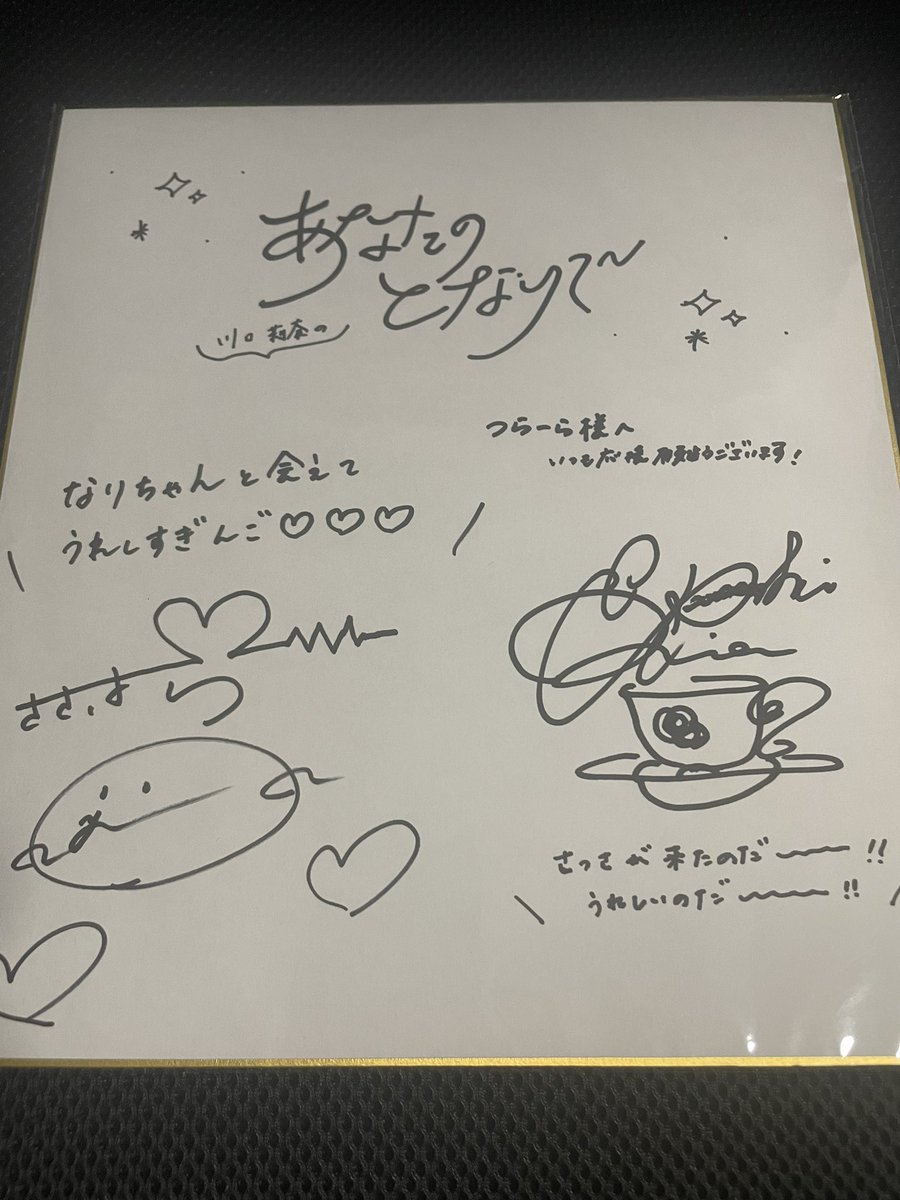 あなたの
となりで〜
川口莉奈の
つらーら様へ
いつも応援ありがとうございます!
なりちゃんと会えて
うれしすぎんご♡♡♡
さっさが来たのだ〜!!
うれしいのだ〜!!